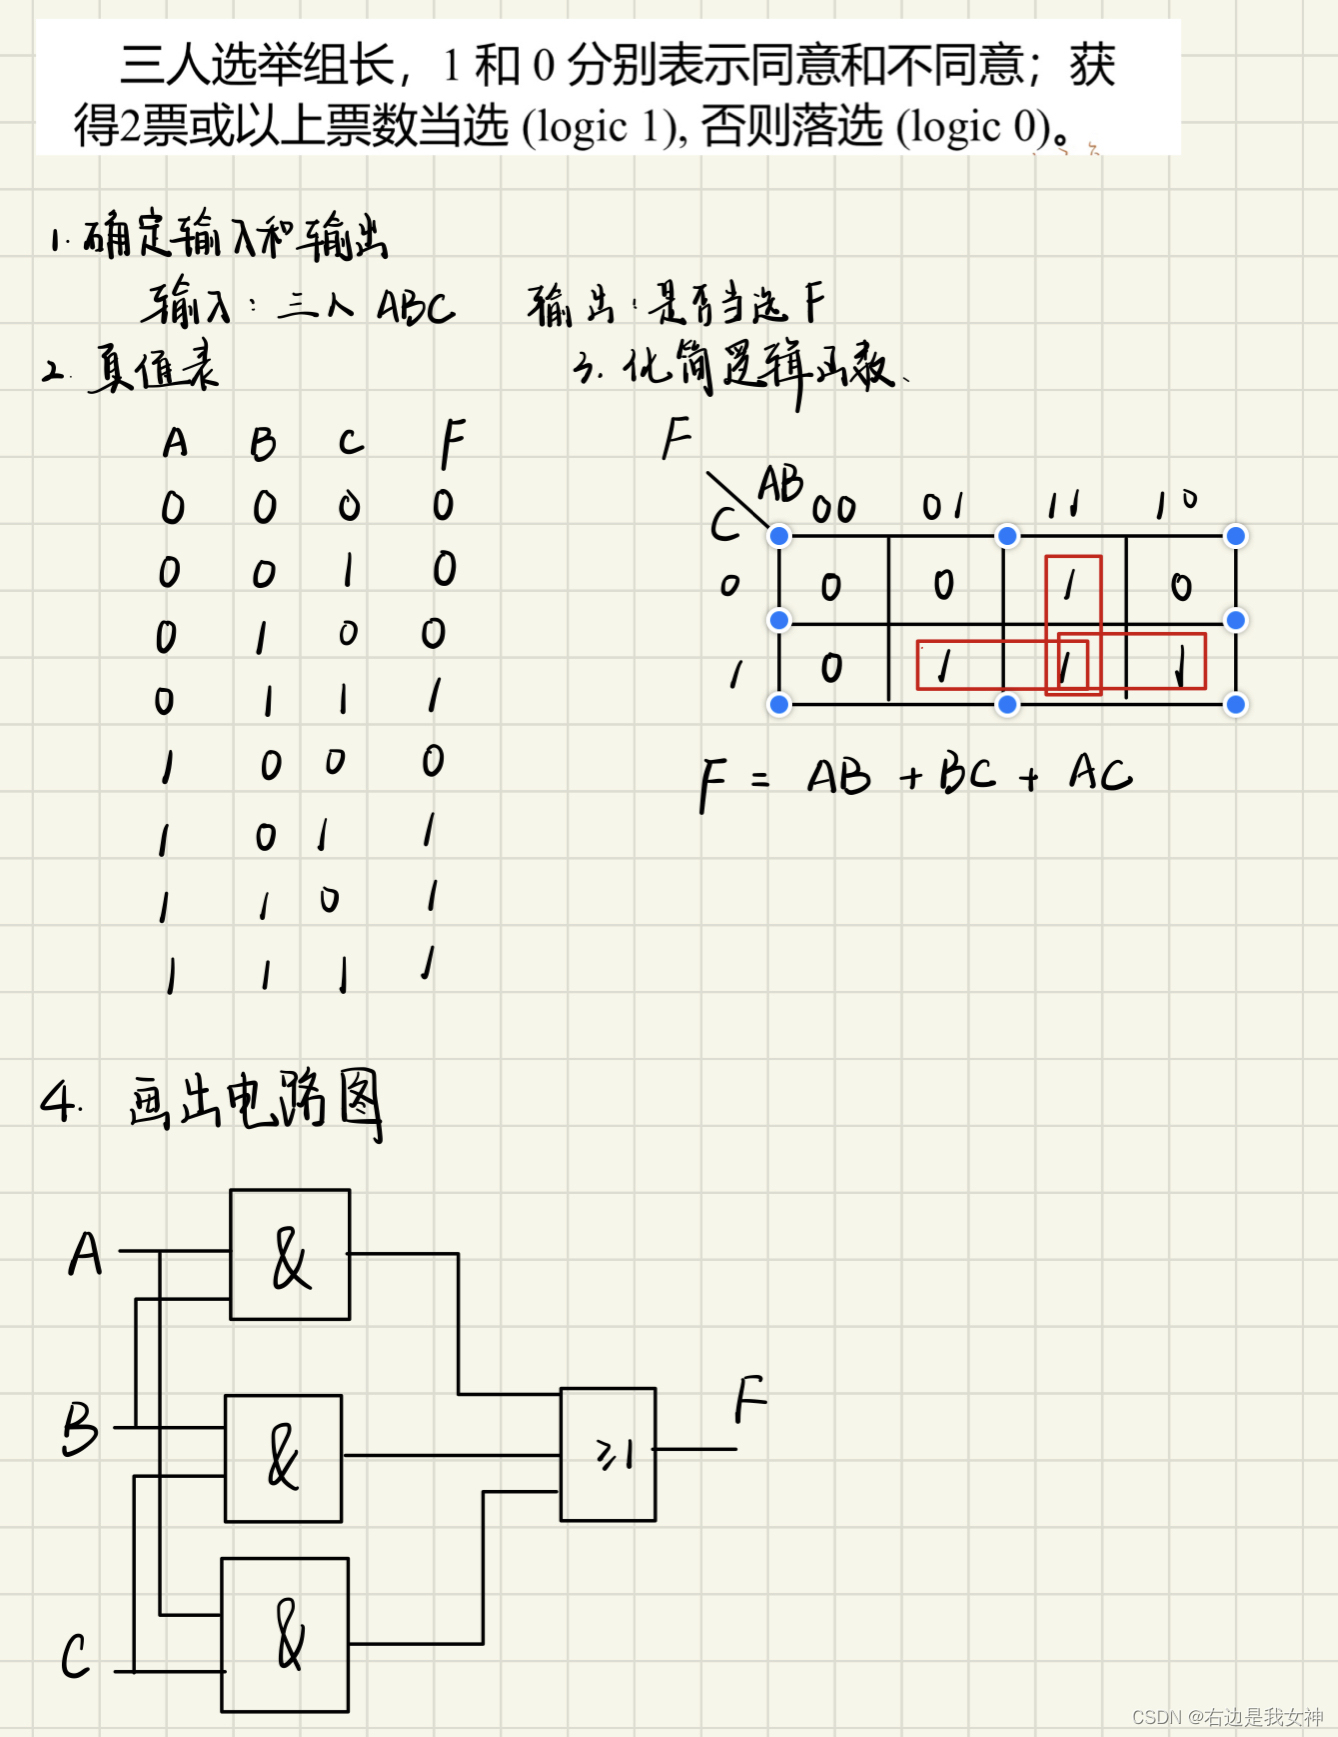 三人选举组长，1 和 0 分别表示同意和不同意；获
得2票或以上票数当选 (logic 1), 否则落选 (logic 0)。
1. 确定输入和输出
输入：三人 ABC 输出：是否当选 F
2. 真值表
A B C F
0 0 0 0
0 0 1 0
0 1 0 0
0 1 1 1
1 0 0 0
1 0 1 1
1 1 0 1
1 1 1 1
3. 化简逻辑函数、
F
AB
C
00 01 11 10
0 0 0 1 0
1 0 1 1 1
F = AB + BC + AC
4. 画出电路图
A
&
B
&
C
&
≥1
F
CSDN @右边是我女神